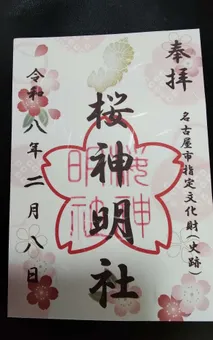 奉拝
名古屋市指定文化財(史跡)
桜神明社
桜神
明社
令和八年二月八日